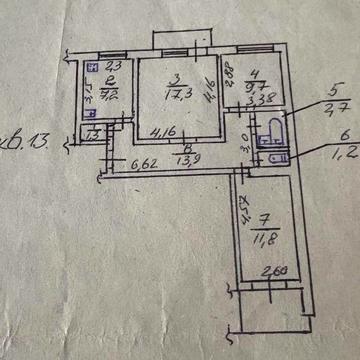 2,3
2
7,2
3,15
3
17,3
4,16
4,16
2,88
4
9,7
3,38
5
2,7
6
1,2
кв.13
1,3
6,62
8
13,9
3,0
4,57
7
11,8
2,60